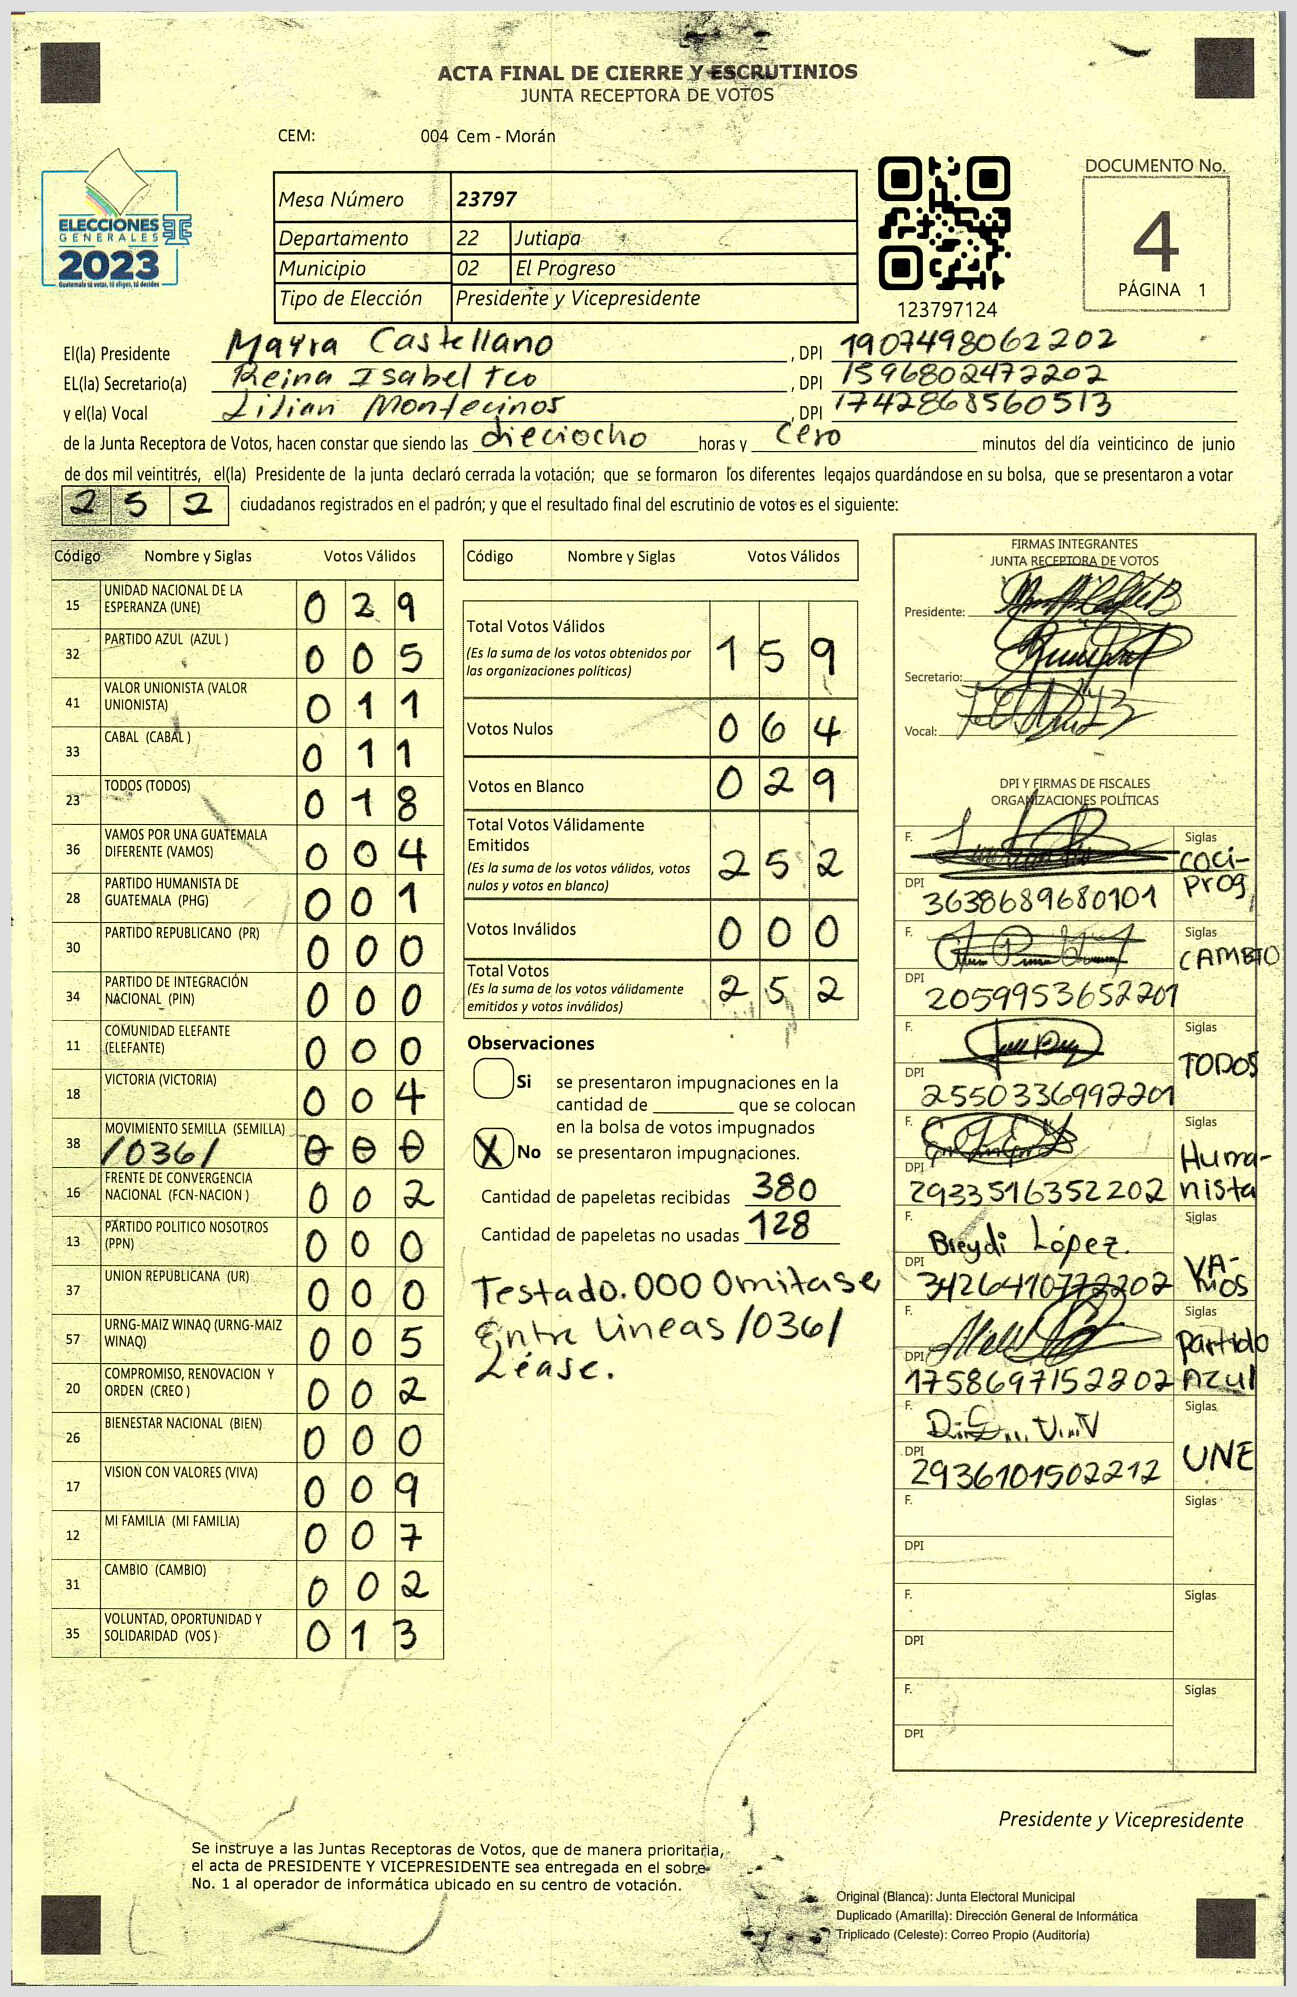 ACTA FINAL DE CIERRE Y ESCRUTINIOS
JUNTA RECEPTORA DE VOTOS
CEM: 004 Cem - Morán
ELECCIONES
GENERALES
2023
Guatemala tú votas, tú eliges, tú decides
Mesa Número 23797
Departamento 22 Jutiapa
Municipio 02 El Progreso
Tipo de Elección Presidente y Vicepresidente
123797124
DOCUMENTO No.
4
PÁGINA 1
El(la) Presidente Mayra Castellano , DPI 1907498062202
EL(la) Secretario(a) Reina Isabel Tco , DPI 1596802472202
y el(la) Vocal Lilian Montecinos , DPI 1742868560513
de la Junta Receptora de Votos, hacen constar que siendo las dieciocho horas y cero minutos del día veinticinco de junio
de dos mil veintitrés, el(la) Presidente de la junta declaró cerrada la votación; que se formaron los diferentes legajos guardándose en su bolsa, que se presentaron a votar
252 ciudadanos registrados en el padrón; y que el resultado final del escrutinio de votos es el siguiente:
Código Nombre y Siglas Votos Válidos
15 UNIDAD NACIONAL DE LA
ESPERANZA (UNE) 029
32 PARTIDO AZUL (AZUL ) 005
41 VALOR UNIONISTA (VALOR
UNIONISTA) 011
33 CABAL (CABAL ) 011
23 TODOS (TODOS) 018
36 VAMOS POR UNA GUATEMALA
DIFERENTE (VAMOS) 004
28 PARTIDO HUMANISTA DE
GUATEMALA (PHG) 001
30 PARTIDO REPUBLICANO (PR) 000
34 PARTIDO DE INTEGRACIÓN
NACIONAL (PIN) 000
11 COMUNIDAD ELEFANTE
(ELEFANTE) 000
18 VICTORIA (VICTORIA) 004
38 MOVIMIENTO SEMILLA (SEMILLA)
/036/ 000
16 FRENTE DE CONVERGENCIA
NACIONAL (FCN-NACION ) 002
13 PARTIDO POLITICO NOSOTROS
(PPN) 000
37 UNION REPUBLICANA (UR) 000
57 URNG-MAIZ WINAQ (URNG-MAIZ
WINAQ) 005
20 COMPROMISO, RENOVACION Y
ORDEN (CREO ) 002
26 BIENESTAR NACIONAL (BIEN) 000
17 VISION CON VALORES (VIVA) 009
12 MI FAMILIA (MI FAMILIA) 007
31 CAMBIO (CAMBIO) 002
35 VOLUNTAD, OPORTUNIDAD Y
SOLIDARIDAD (VOS ) 013
Código Nombre y Siglas Votos Válidos
Total Votos Válidos
(Es la suma de los votos obtenidos por
las organizaciones políticas) 159
Votos Nulos 064
Votos en Blanco 029
Total Votos Válidamente
Emitidos
(Es la suma de los votos válidos, votos
nulos y votos en blanco) 252
Votos Inválidos 000
Total Votos
(Es la suma de los votos válidamente
emitidos y votos inválidos) 252
Observaciones
Si se presentaron impugnaciones en la
cantidad de ________ que se colocan
en la bolsa de votos impugnados
X No se presentaron impugnaciones.
Cantidad de papeletas recibidas 380
Cantidad de papeletas no usadas 128
Testado.000 Omitase
Entre lineas /036/
Léase.
FIRMAS INTEGRANTES
JUNTA RECEPTORA DE VOTOS
Presidente:
Secretario:
Vocal:
DPI Y FIRMAS DE FISCALES
ORGANIZACIONES POLÍTICAS
F. Siglas
COCI-
Prog
DPI 3638689680101
F. Siglas
CAMBIO
DPI 2059953652201
F. Siglas
TODOS
DPI 2550336992201
F. Siglas
Huma-
nista
DPI 2933516352202
F. Breydi López. Siglas
VA-
MOS
DPI 3426410772202
F. Siglas
Partido
Azul
DPI 1758697152202
F. Siglas
UNE
DPI 2936101502212
F. Siglas
DPI
F. Siglas
DPI
F. Siglas
DPI
Presidente y Vicepresidente
Se instruye a las Juntas Receptoras de Votos, que de manera prioritaria,
el acta de PRESIDENTE Y VICEPRESIDENTE sea entregada en el sobre
No. 1 al operador de informática ubicado en su centro de votación.
Original (Blanca): Junta Electoral Municipal
Duplicado (Amarilla): Dirección General de Informática
Triplicado (Celeste): Correo Propio (Auditoría)